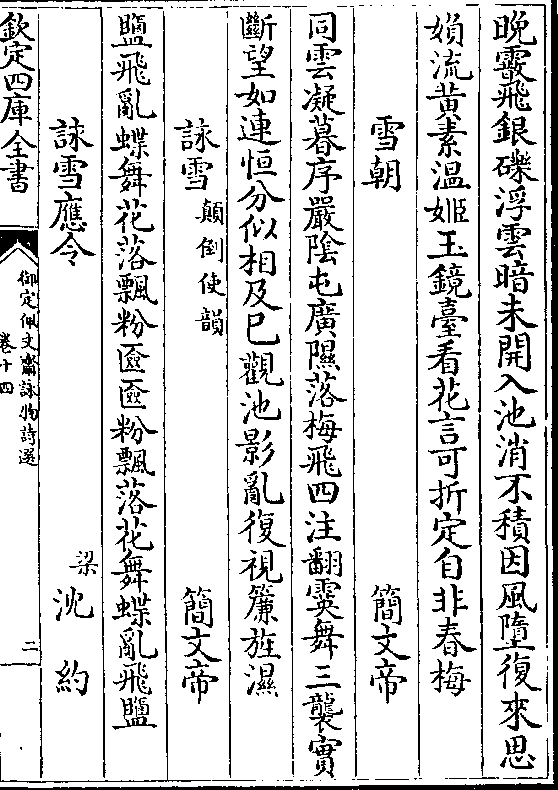 晚霰飛銀礫浮雲暗未開入池消不積因風墮復來思
媍流黄素温姬玉鏡臺看花言可折定自非春梅
雪朝 簡文帝
同雲凝暮序嚴陰屯廣隰落梅飛四注翻霙舞三襲實
斷望如連恒分似相及已觀池影亂復視簾旌濕
詠雪顛倒使韻 簡文帝
鹽飛亂蝶舞花落飄粉匳匳粉飄落花舞蝶亂飛鹽
詠雪應令 梁沈約
欽定四庫全書
御定佩文齋詠物詩選
卷十四
二